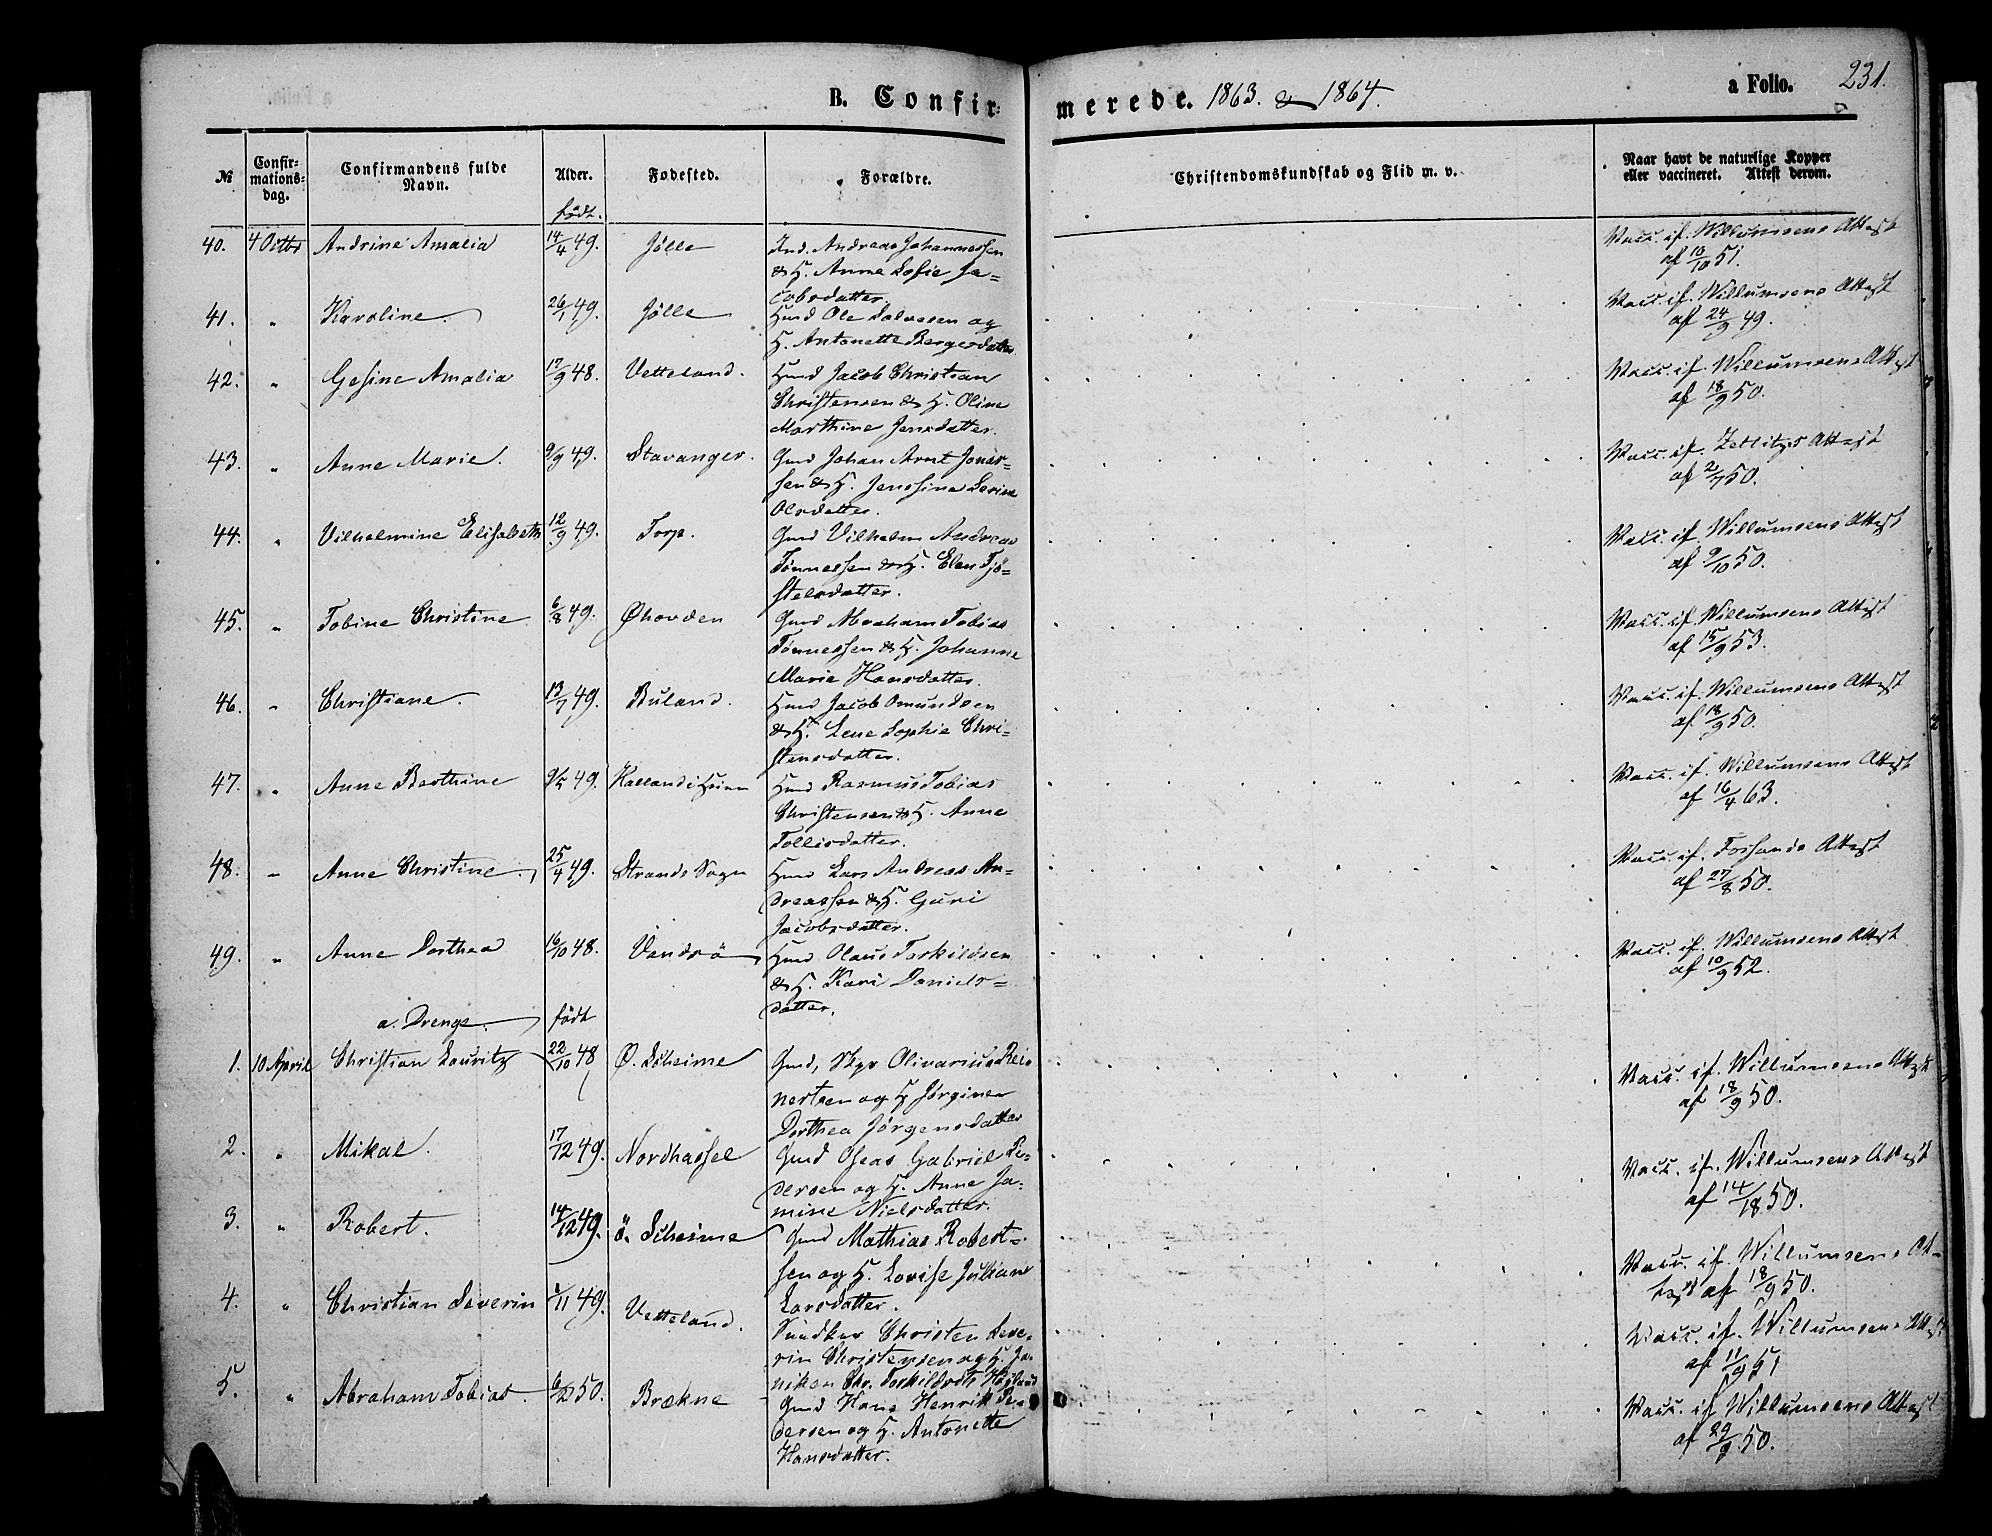 B. Confir=
merede. 1863. & 1864.
a Folio. 231.
№
Confir=
mations=
dag.
Confirmandens fulde
Navn.
Alder.
Fødested.
Forældre.
Christendomskundskab og Flid m. v.
Naar havt de naturlige Kopper
eller vaccineret. Attest derom.
født.
40. 4 Octbr Andrine Amalia 14/4 49. Jølle Ind. Andreas Johannessen
& H. Anne Sofie Ja=
cobsdatter.
Vacc. if. Willumsens Attest
af 10/10 51.
41. " Karoline. 26/1 49. Jølle Gmd Ole Salvesen og
H. Antonette Bergesdatter
Vacc. if. Willumsens Attest
af 24/9 49.
42. " Gesine Amalia 17/9 48. Vetteland. Gmd Jacob Christian
Christensen & H. Oline
Marthine Jensdatter.
Vacc. if. Willumsens Attest
af 18/9 50.
43. " Anne Marie. 9/9 49. Stavanger. Gmd Johan Arnt Jonas=
sen & H. Jensine Serine
Olsdatter.
Vacc. if. Zetlitz's Attest
af 2/7 50.
44. " Vilhelmine Elisabeth 12/9 49. Torp. Gmd Vilhelm Andreas
Tønnessen & H. Elen Tjø=
stelsdatter.
Vacc. if. Willumsens Attest
af 9/10 50.
45. " Tobine Christine 6/8 49. Øhovden Gmd Abraham Tobias
Tønnessen & H. Johanne
Marie Hansdatter.
Vacc. if. Willumsens Attest
af 15/9 53.
46. " Christiane. 13/7 49. Buland. Gmd Jacob Omundsen
& H. Lene Sophie Chri=
stensdatter.
Vacc. if. Willumsens Attest
af 18/9 50.
47. " Anne Berthine 9/5 49. Gmd Rasmus Tobias
Christensen & H. Anne
Tollisdatter.
Vacc. if. Willumsens Attest
af 16/4 63.
48. " Anne Christine 25/4 49. Strands Sogn Gmd Lars Andreas An=
dreassen & H. Guri
Jacobsdatter.
Vacc. if. Forsands Attest
af 27/8 50.
49. " Anne Dorthea 16/10 48. Vandsø Gmd Olaus Torkildsen
& H. Kari Daniels=
datter.
Vacc. if. Willumsens Attest
af 10/9 52.
a. Drenge. født
1. 10 April Christian Lauritz 22/10 48 Ø. Sdheime Gmd, Skpr Olivarius Rei=
nertsen og H Jørgine
Dorthea Jørgensdatter
Vacc. if. Willumsens Attest
af 18/9 50.
2. " Mikal. 17/12 49. Nordhassel Gmd Oseas Gabriel Pe=
dersen og H. Anne Ja=
mine Nielsdatter.
Vacc. if. Willumsens Attest
af 14/18 50.
3. " Robert. 14/12 49. Ø. Sdheime Gmd Mathias Robert=
sen og H. Lovise Juliane
Larsdatter.
Vacc. if. Willumsens At=
test af 18/9 50.
4. " Christian Severin /11 49. Vetteland. Christen Seve=
rin Christensen og H. Ja=
nikken Chr. Torkildsdtr
Vacc. if. Willumsens Attest
af 11/9 51
5. " Abraham Tobias. 6/2 50. Brækne Gmd Hans Henrik Pe=
dersen og H. Antonette
Hansdatter.
Vacc. if Willumsens Attest
af 29/9 50.